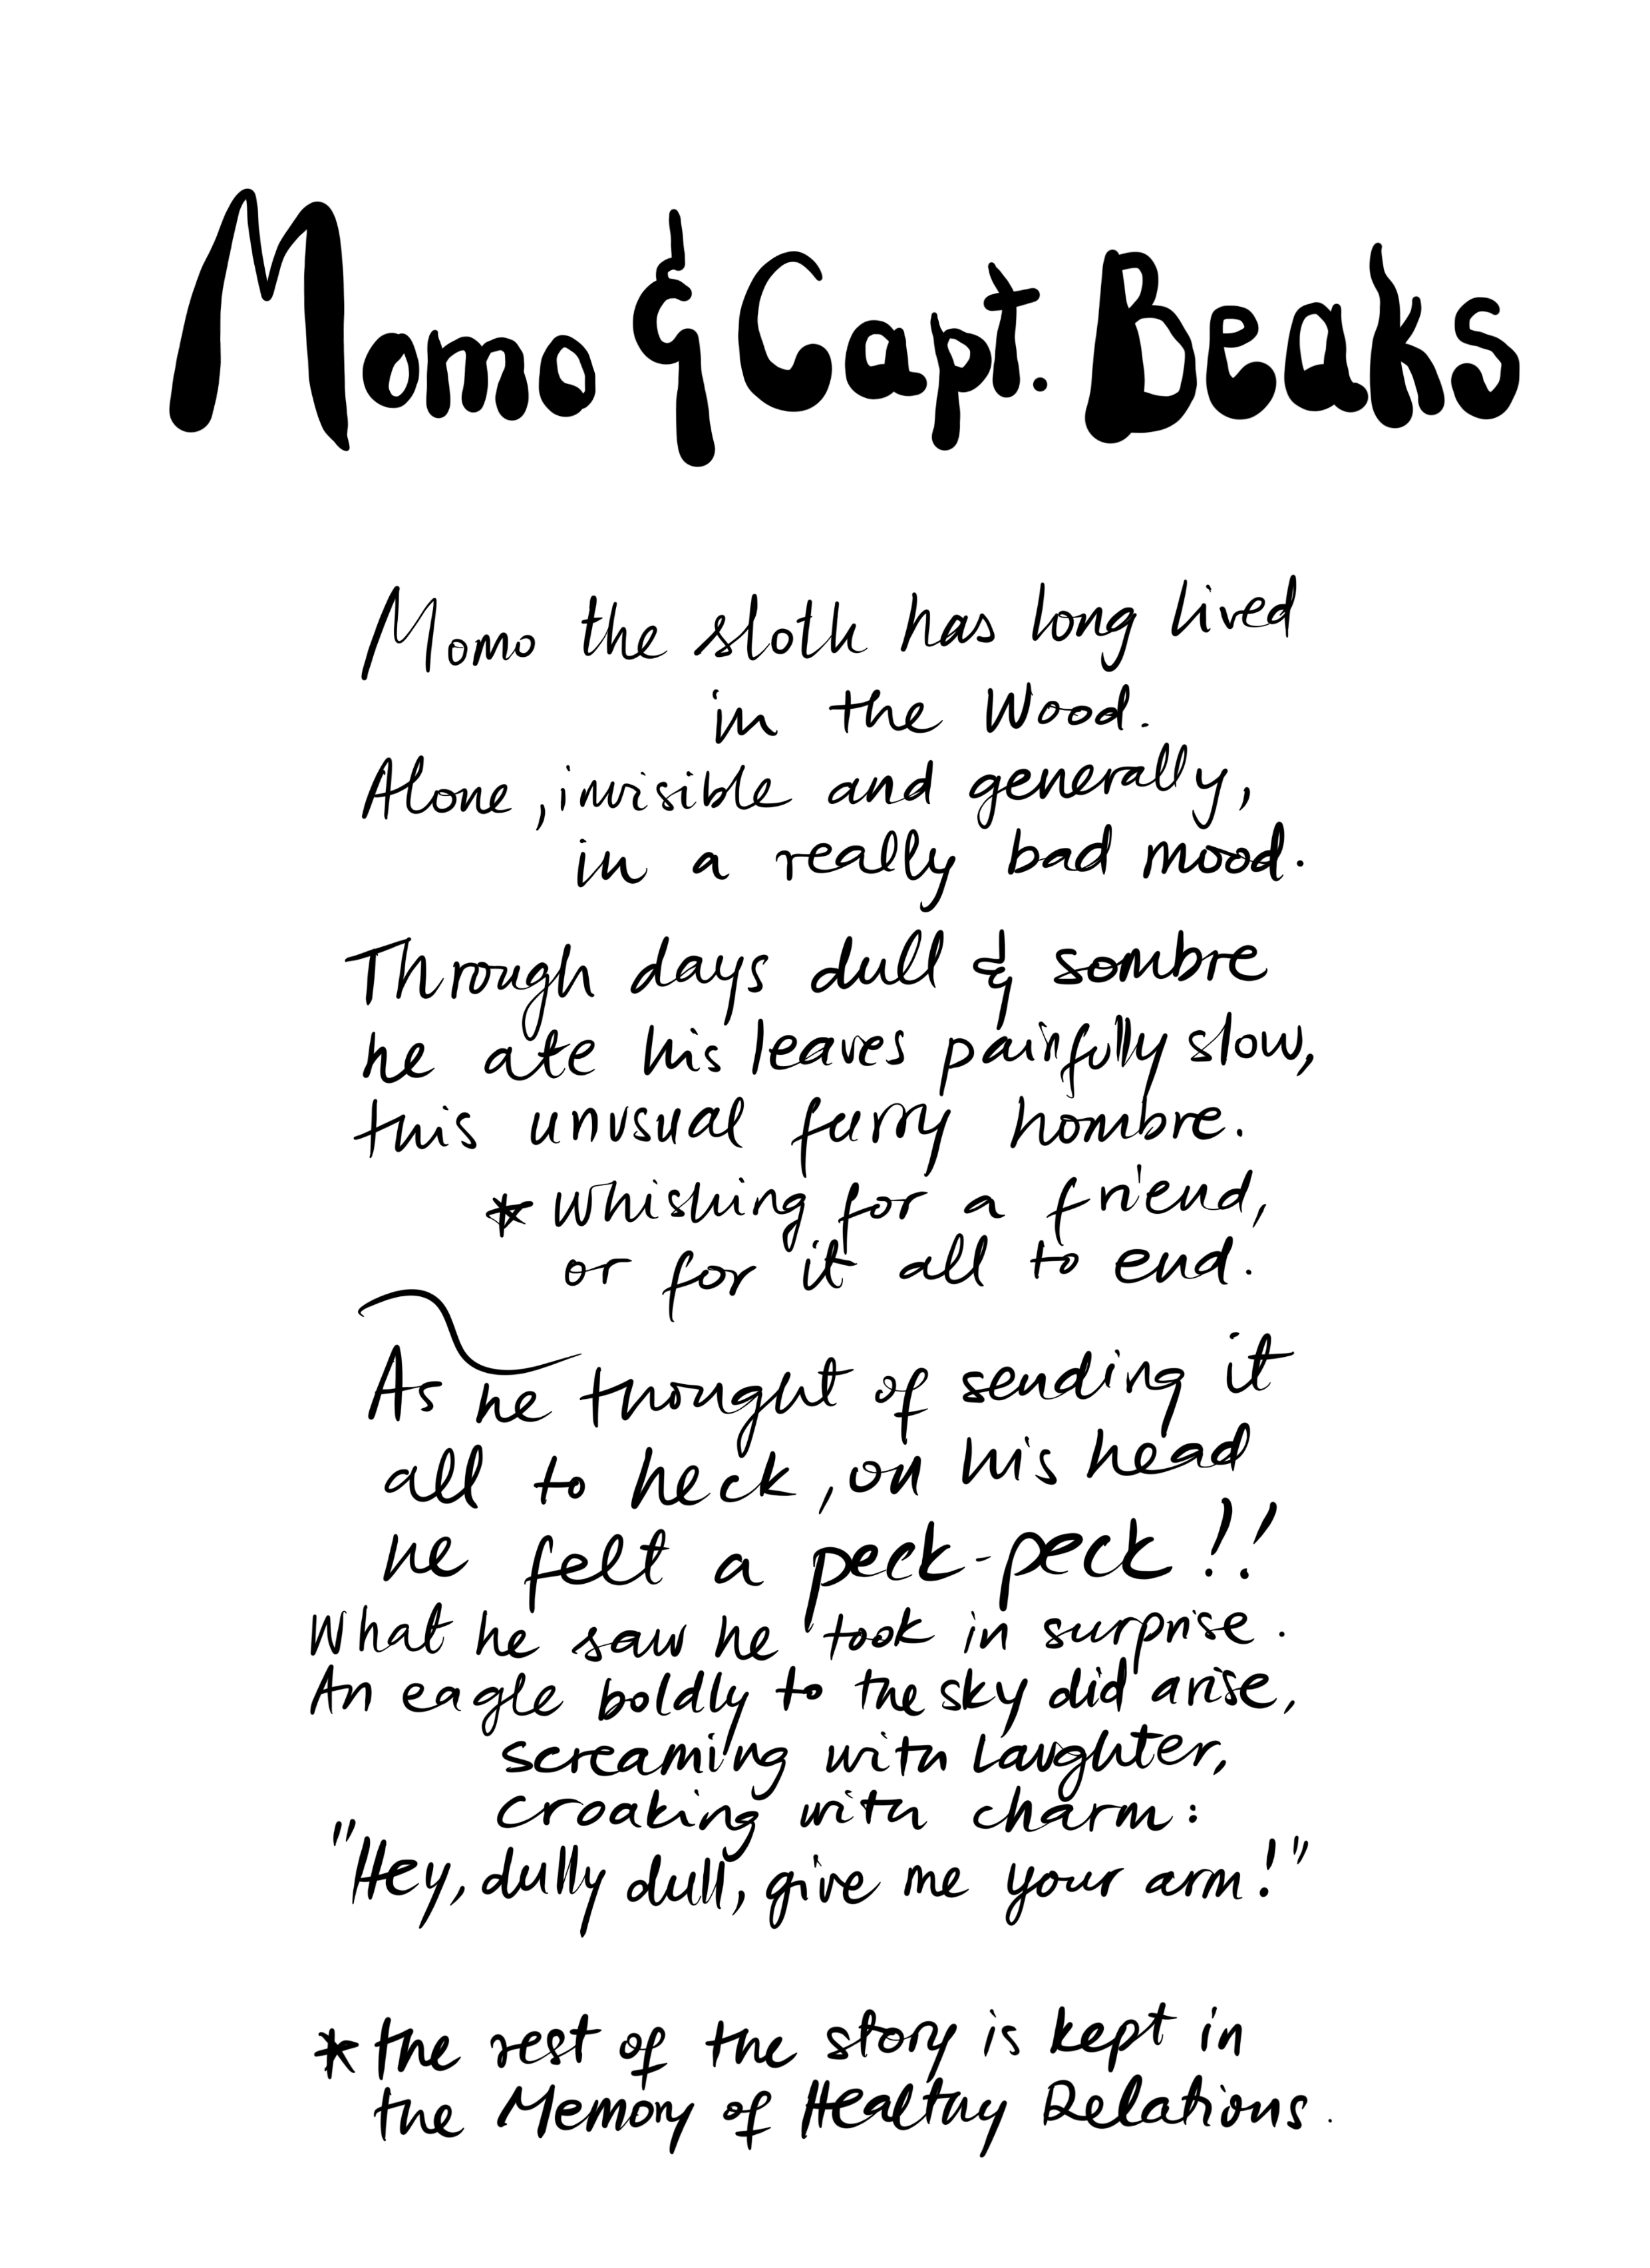 Momo & Capt. Beaks
Momo the sloth has long lived
in the Wood.
Alone, invisible and generally,
in a really bad mood.
Through days dull & sombre
he ate his leaves painfully slow,
this unusual furry hombre.
* whishing for a friend,
or for it all to end.
As he thought of sending it
all to heck, on his head
he felt a peck-peck!!
What he saw he took in surprise.
An eagle boldly to the sky did arise,
screaming with laughter,
croaking with charm:
"Hey, dully dull, give me your arm!"
* the rest of the story is kept in
the Memory of Healthy Relations.